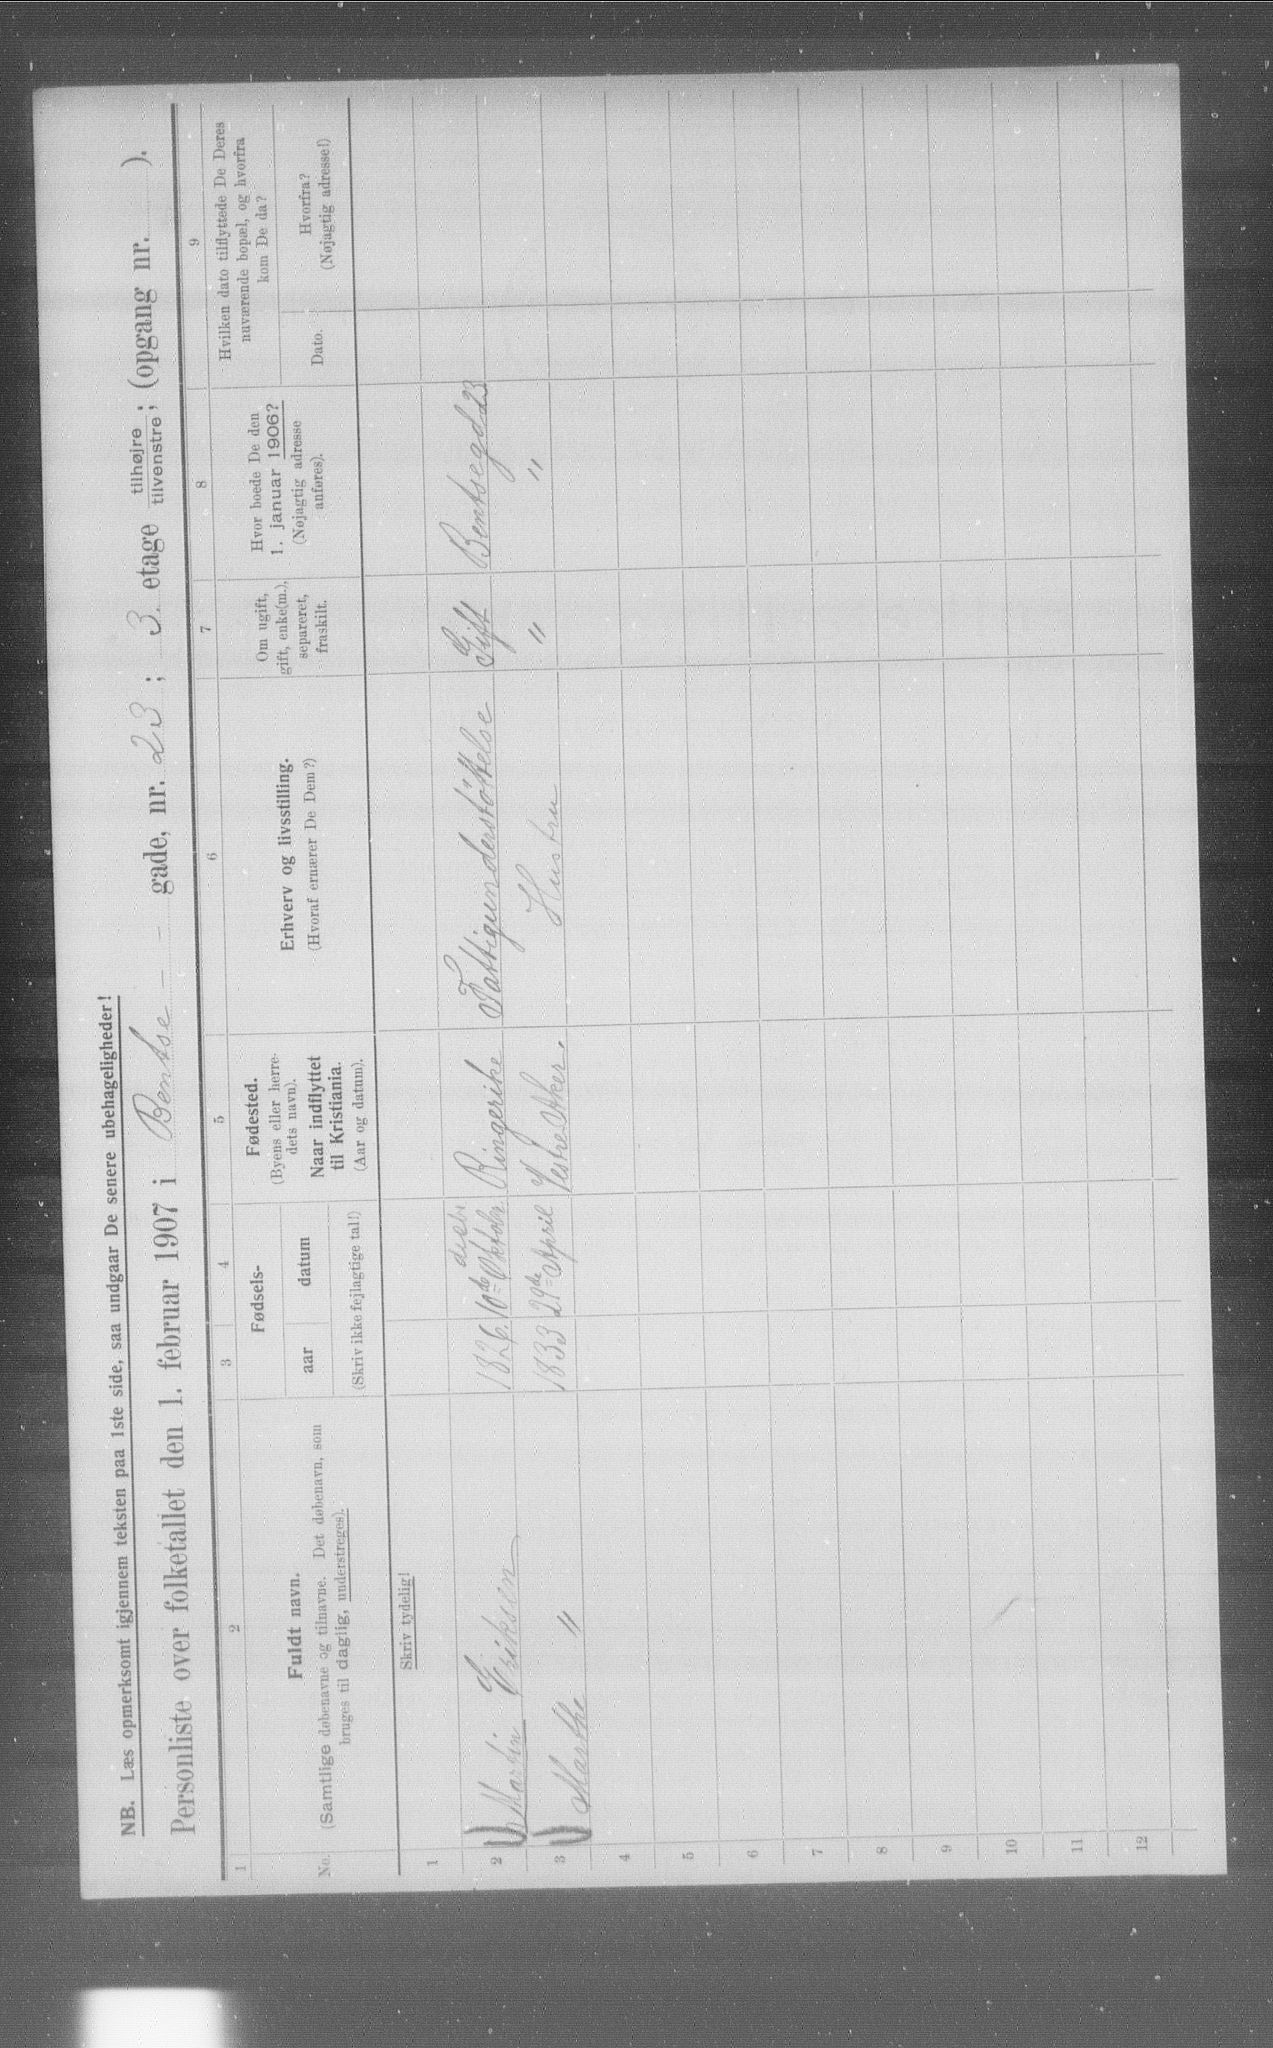 NB. Læs opmerksomt igjennem teksten paa 1ste side, saa undgaar De senere ubehageligheder!
Personliste over folketallet den 1. februar 1907 i Bentse gade, nr. 23; 3. etage tilhøjre; tilvenstre; (opgang nr. ).
1 2 3 4 5 6 7 8 9
No.
Fuldt navn.
(Samtlige døbenavne og tilnavne. Det døbenavn, som
bruges til daglig, understreges).
Fødsels-
aar datum
(Skriv ikke fejlagtige tal!)
Fødested.
(Byens eller herre-
dets navn).
Naar indflyttet
til Kristiania.
(Aar og datum).
Erhverv og livsstilling.
(Hvoraf ernærer De Dem?)
Om ugift,
gift, enke(m.),
separeret,
fraskilt.
Hvor boede De den
1. januar 1906?
(Nøjagtig adresse
anføres).
Hvilken dato tilflyttede De Deres
nuværende bopæl, og hvorfra
kom De da?
Dato.
Hvorfra?
(Nøjagtig adresse!)
Skriv tydelig!
1
2 Martin Eriksen 1826 10de Oktobr. Ringerike Fattigunderstöttelse Gift Bentsegd 23
3 Marthe " 1833 29de April Vestre Aker. Hustru " "
4
5
6
7
8
9
10
11
12